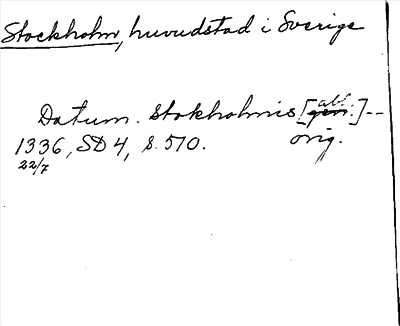 Stockholm, huvudstad i Sverige
Datum. Stokholmis [gen. abl.]--
1336, SD 4, s. 570. orig.
22/7